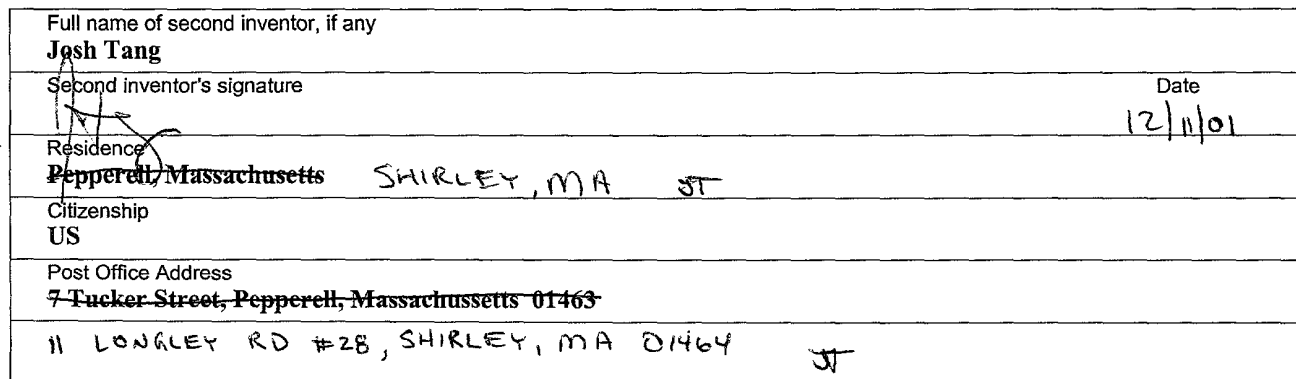 Full name of second inventor, if any
Josh Tang
Second inventor's signature Date
12/11/01
Residence
Pepperell, Massachusetts SHIRLEY, MA JT
Citizenship
US
Post Office Address
7 Tucker Street, Pepperell, Massachussetts 01463
11 LONGLEY RD #28, SHIRLEY, MA 01464 JT